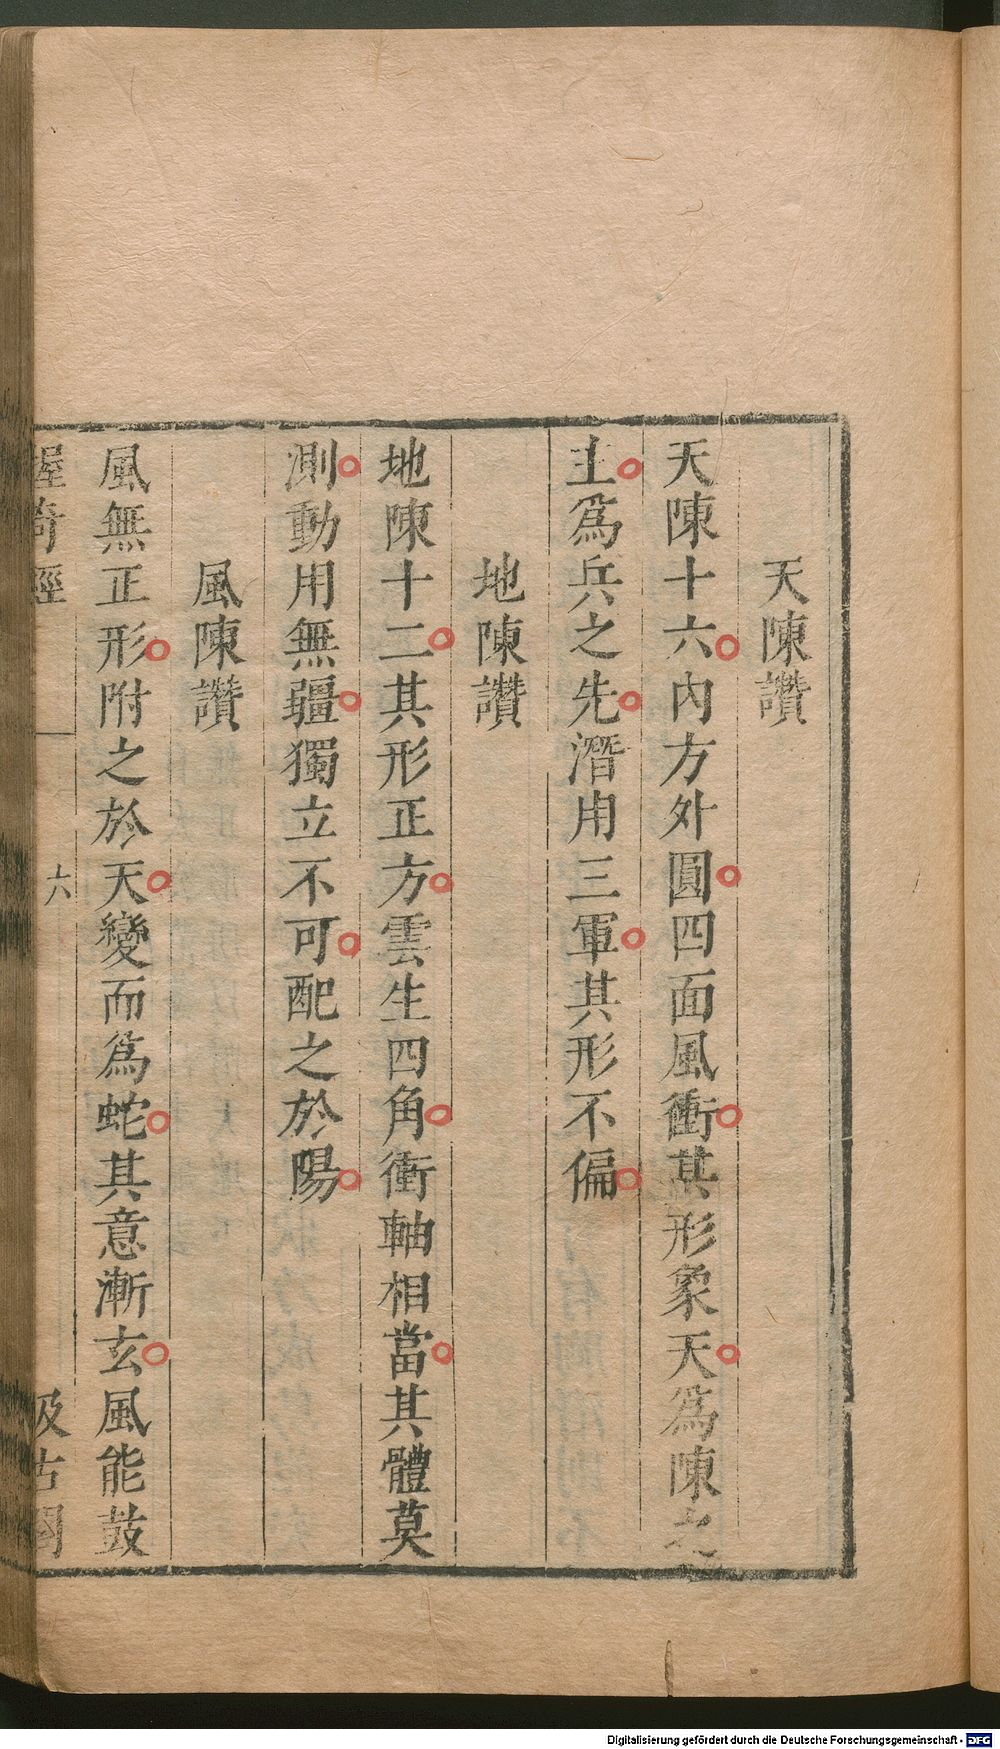 天陳讚
天陳十六內方外圓四面風衝其形象天爲陳之
主爲兵之先潛用三軍其形不偏
地陳讚
地陳十二其形正方雲生四角衝軸相當其體莫
測動用無疆獨立不可配之於陽
風陳讚
風無正形附之於天變而爲蛇其意漸玄風能鼓
握奇經 六 汲古閣
Digitalisierung gefördert durch die Deutsche Forschungsgemeinschaft - DFG